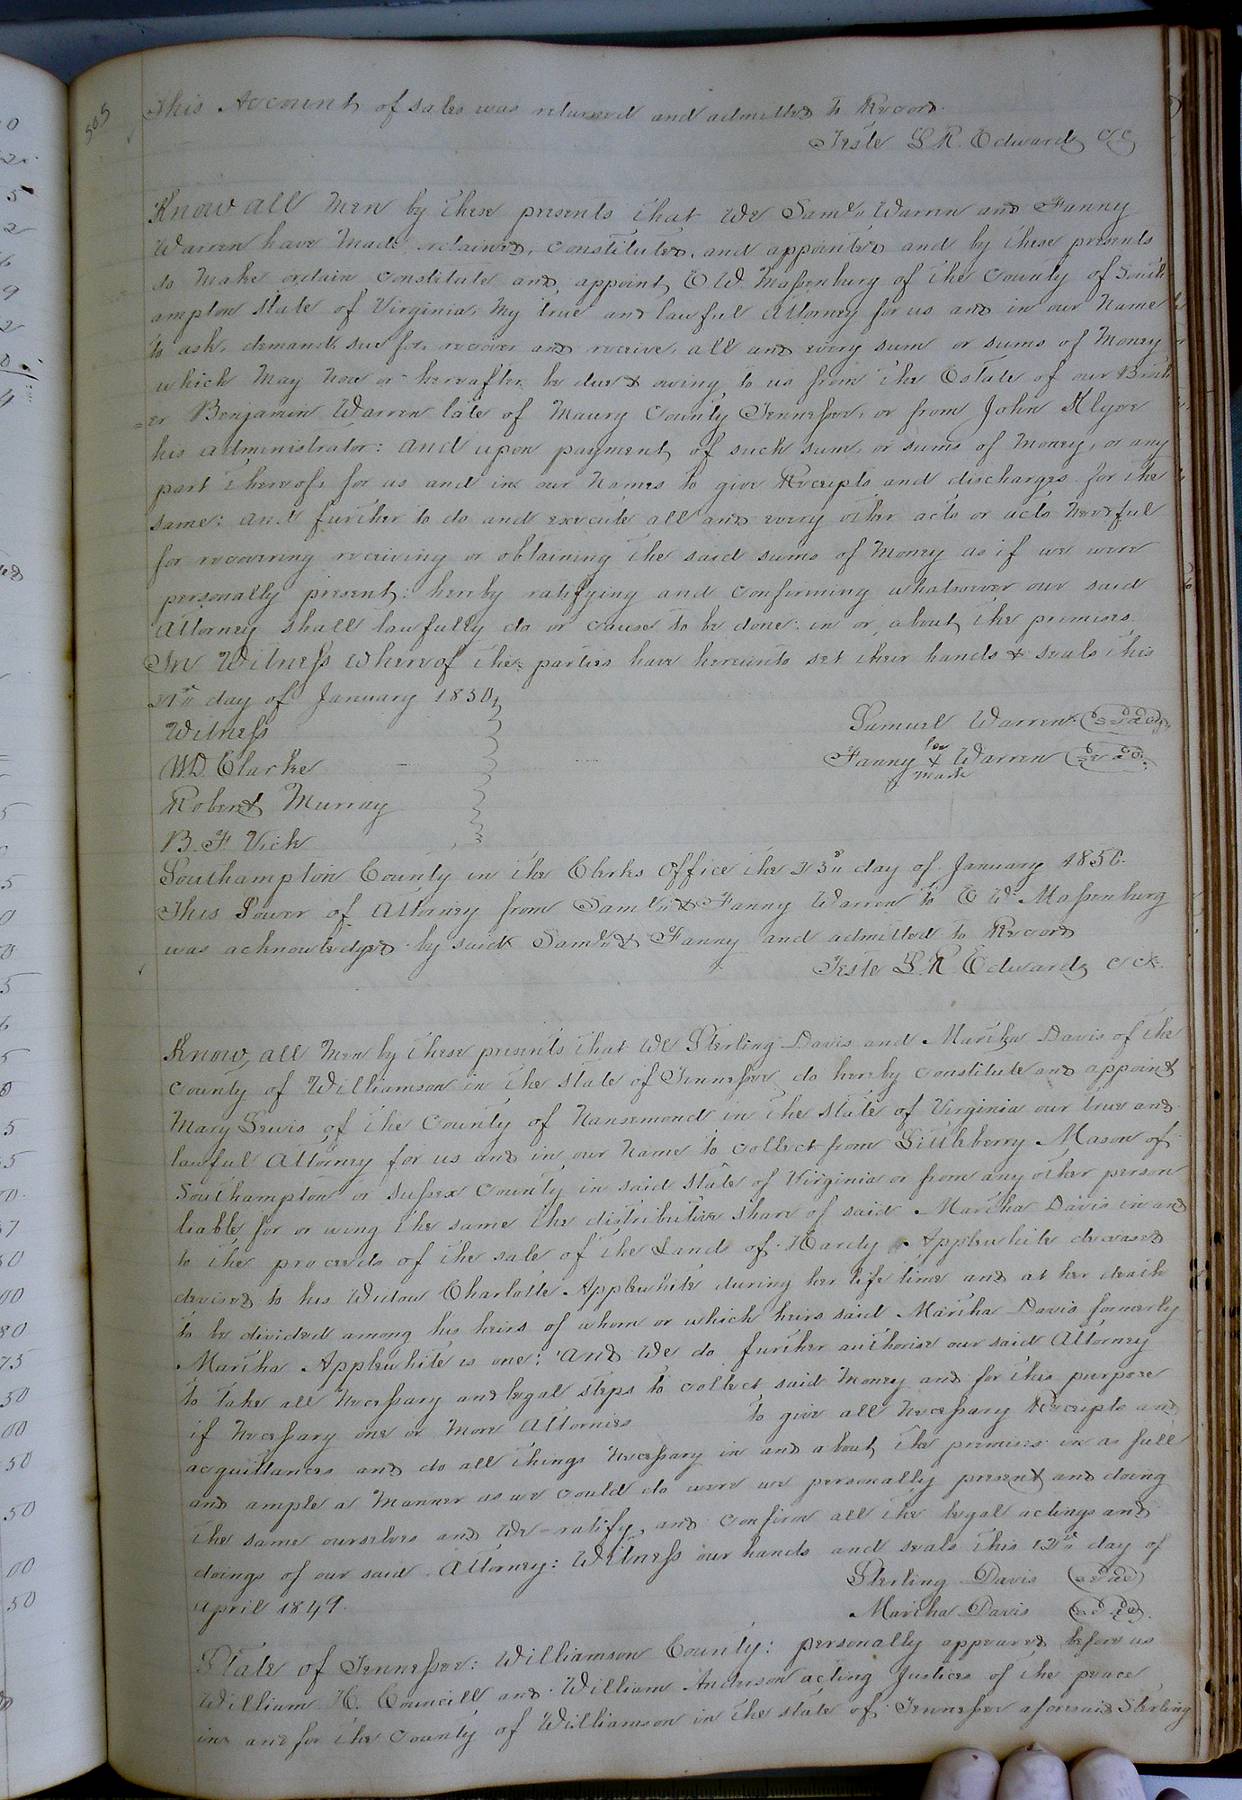 505
This Account of sales was returned and admitted to Record.
Teste L. R. Edwards CC
Know all Men by these presents that We Saml. Warren and Fanny
Warren have Made, retained, Constituted, and appointed and by these presents
do Make ordain constitute and, appoint, E. W. Massenburg of the County of South
ampton State of Virginia, My true and lawful Attorney for us and in our Name
to ask, demand, sue for, recover and receive, all and every sum or sums of Money
which May Now or hereafter be due & owing to us from the Estate of our Broth
=er Benjamin Warren late of Maury County Tennessee, or from John Klyce
his administrator: and upon payment of such sum, or sums of Money, or any
part thereof, for us and in our Names to give Receipts and discharges for the
same: and further to do and execute all and every other acts or acts Needful
for recovering receiving or obtaining the said sums of Money as if we were
personally present: hereby ratifying and confirming whatsoever our said
Attorney shall lawfully do or cause to be done in or about the premises.
In Witness whereof the parties have hereunto set their hands & seals this
day of January 1850
Witness
Samuel Warren (Seal)
W. D. Clarke
Fanny her X mark Warren (Seal)
Robert Murray
B. F. Vick
Southampton County in the Clerks Office the day of January 1850.
This Power of Attorney from Saml. & Fanny Warren to E W. Massenburg
was acknowledged by said Saml. & Fanny and admitted to Record
Teste L. R. Edwards C.Ck.
Know all Men by these presents that We Sterling Davis and Martha Davis of the
County of Williamson in the State of Tennessee do hereby constitute and appoint
Mary of the County of Nansemond in the State of Virginia our true and
lawful Attorney for us and in our Name to collect from Littleberry Mason of
Southampton or Sussex County in said State of Virginia or from any other person
liable for or wing the same the distributive share of said Martha Davis in and
to the proceeds of the sale of the Lands of Hardy Applewhite deceased
devised to his Widow Charlotte Applewhite during her life time and at her death
to be divided among his heirs of whom or which heirs said Martha Davis formerly
Martha Applewhite is one: And We do further authorise our said Attorney
to take all Necessary and legal steps to collect said Money and for this purpose
if Necessary one or More Attornies to give all Necessary Receipts and
acquittances and do all things Necessary in and about the premises in as full
and ample a Manner as we could do were we personally present and doing
the same ourselves and We ratify and confirm all the legal actings and
doings of our said Attorney: Witness our hands and seals this 12th day of
April 1849.
Sterling Davis (Seal)
Martha Davis (Seal)
State of Tennessee: Williamson County: personally appeared before us
William H. Councill and William Anderson acting Justices of the peace
in and for the County of Williamson in the State of Tennessee aforesaid Sterling